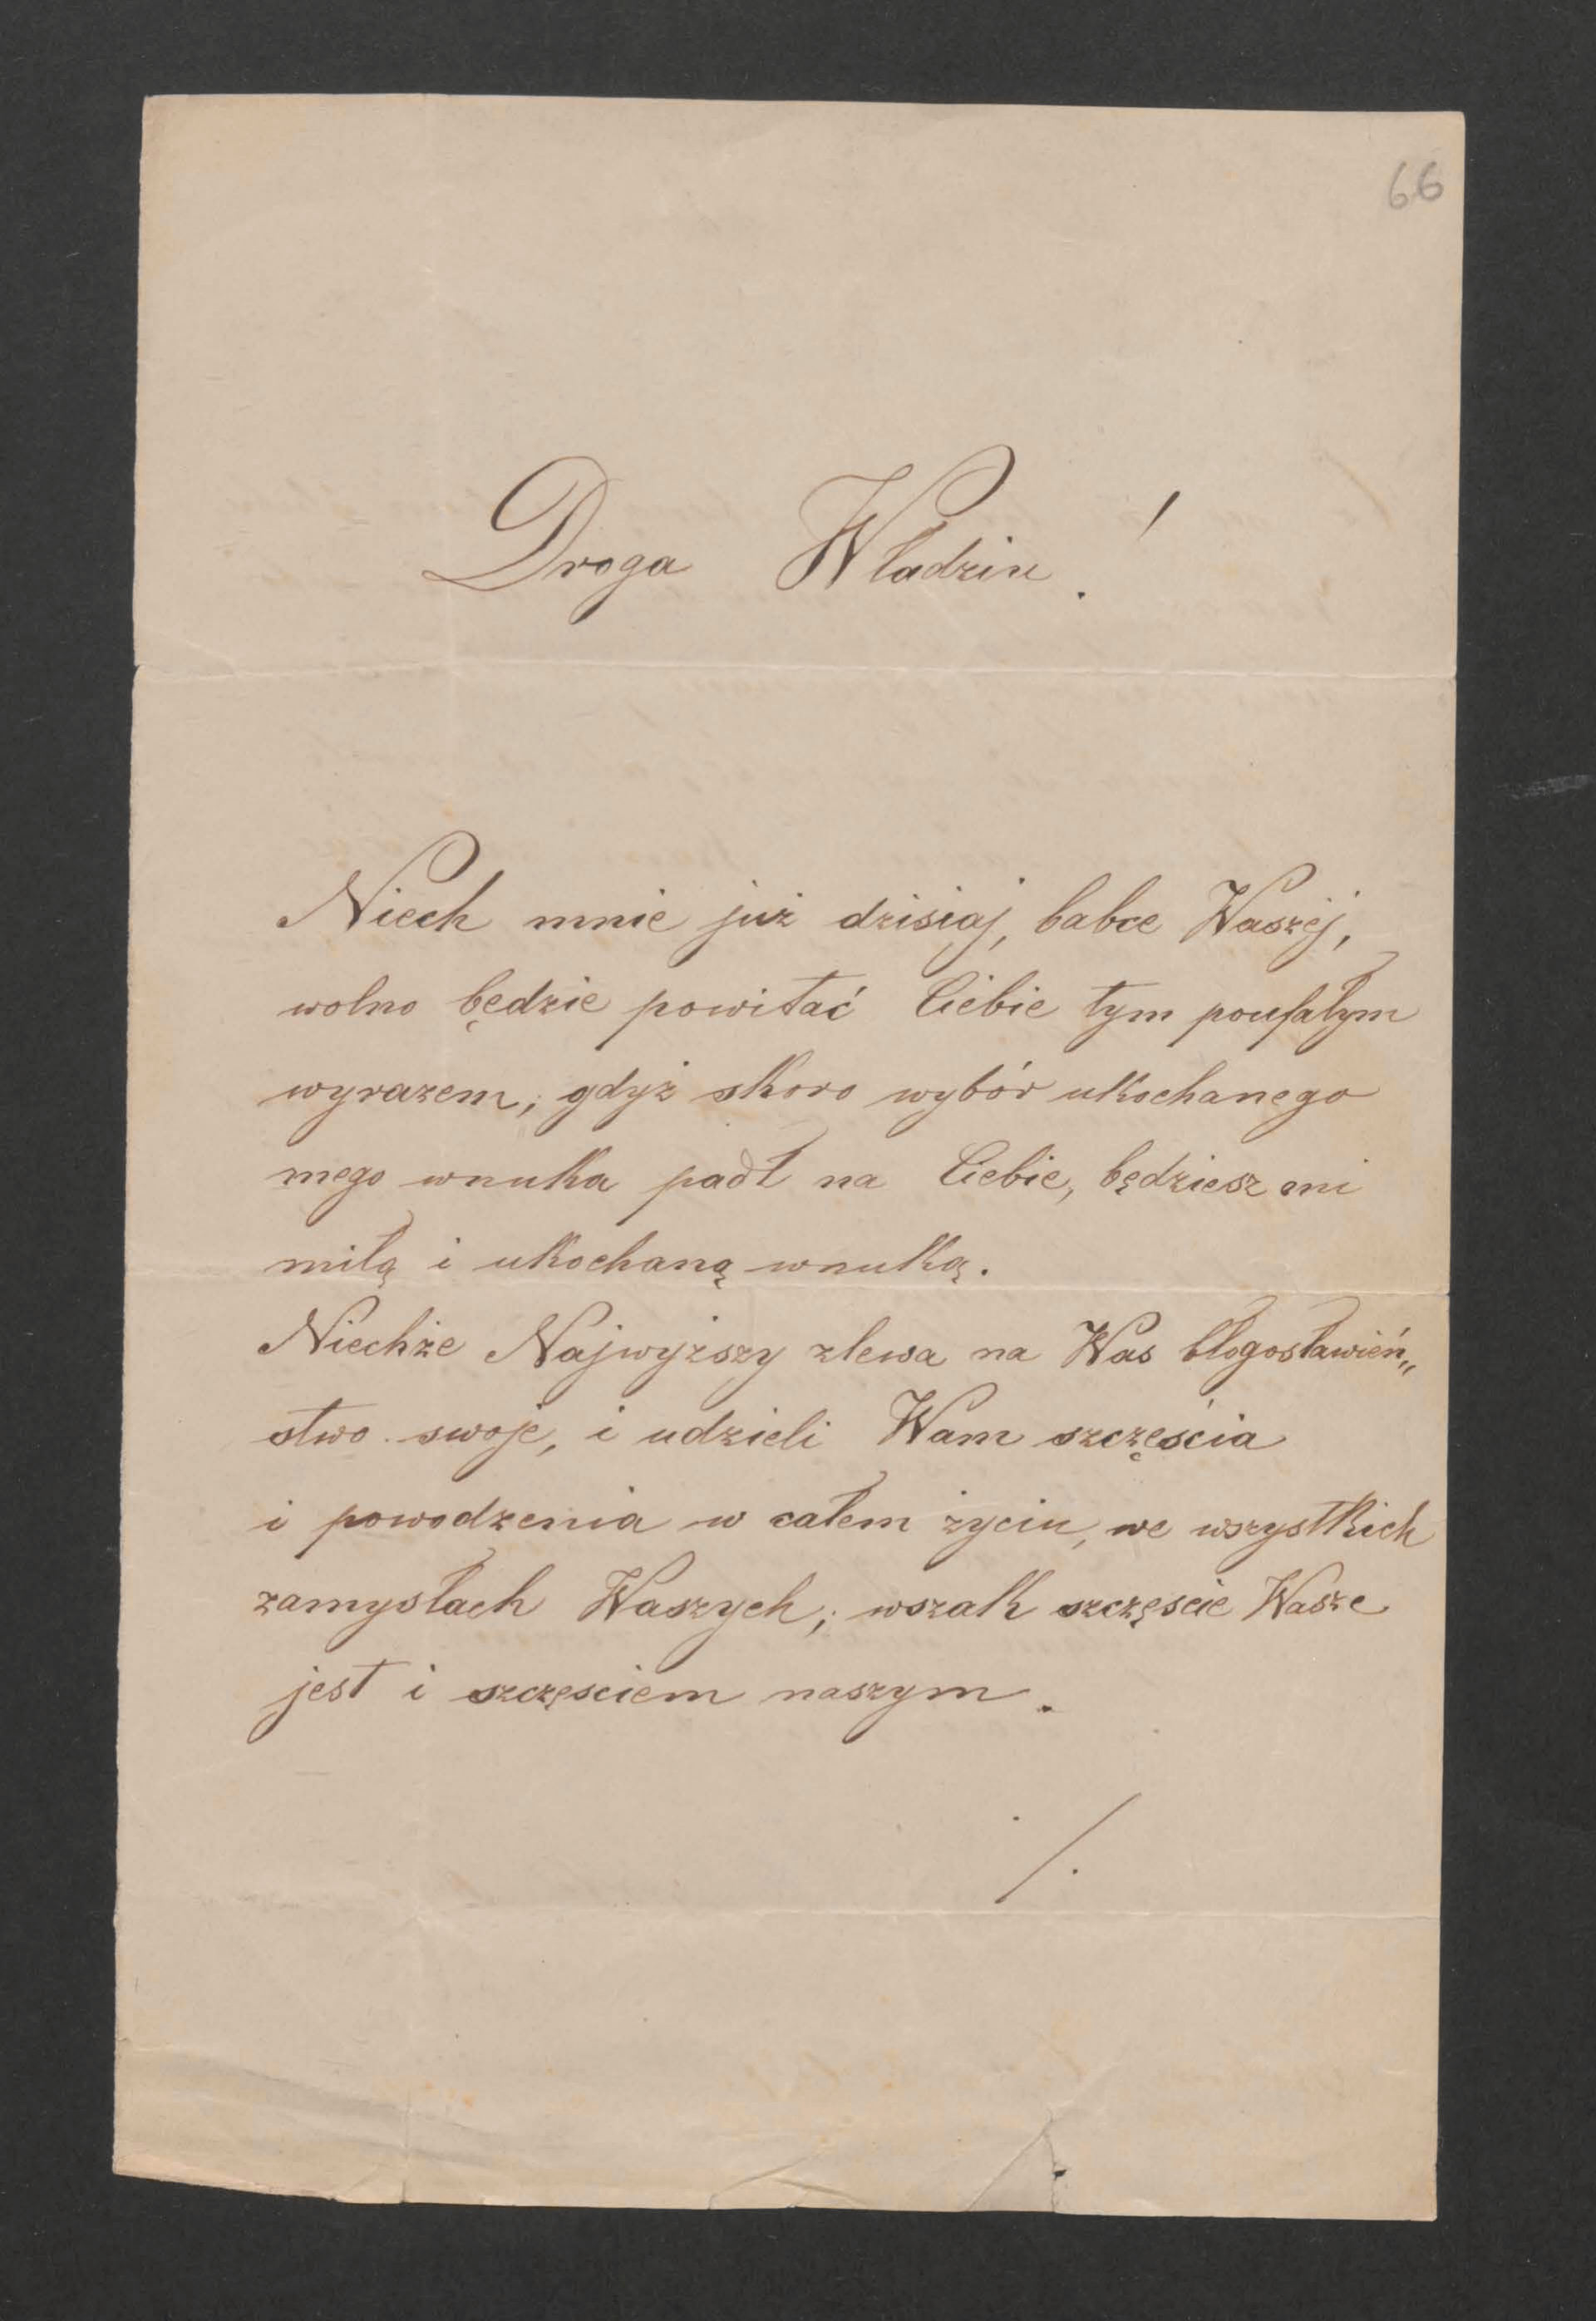 66
Droga Władziu!
Niech mnie już dzisiaj, babce Waszéj,
wolno będzie powitać Ciebie tym poufałym
wyrazem; gdyż skoro wybór ukochanego
mego wnuka padł na Ciebie, będziesz mi
miłą i ukochaną wnuką.
Niechże Najwyższy zlewa na Was błogosławień„
stwo swoje, i udzieli Wam szczęścia
i powodzenia w całem życiu, we wszystkich
zamysłach Waszych; wszak szczęscie Wasze
jest i szczęsciem naszym.
./.